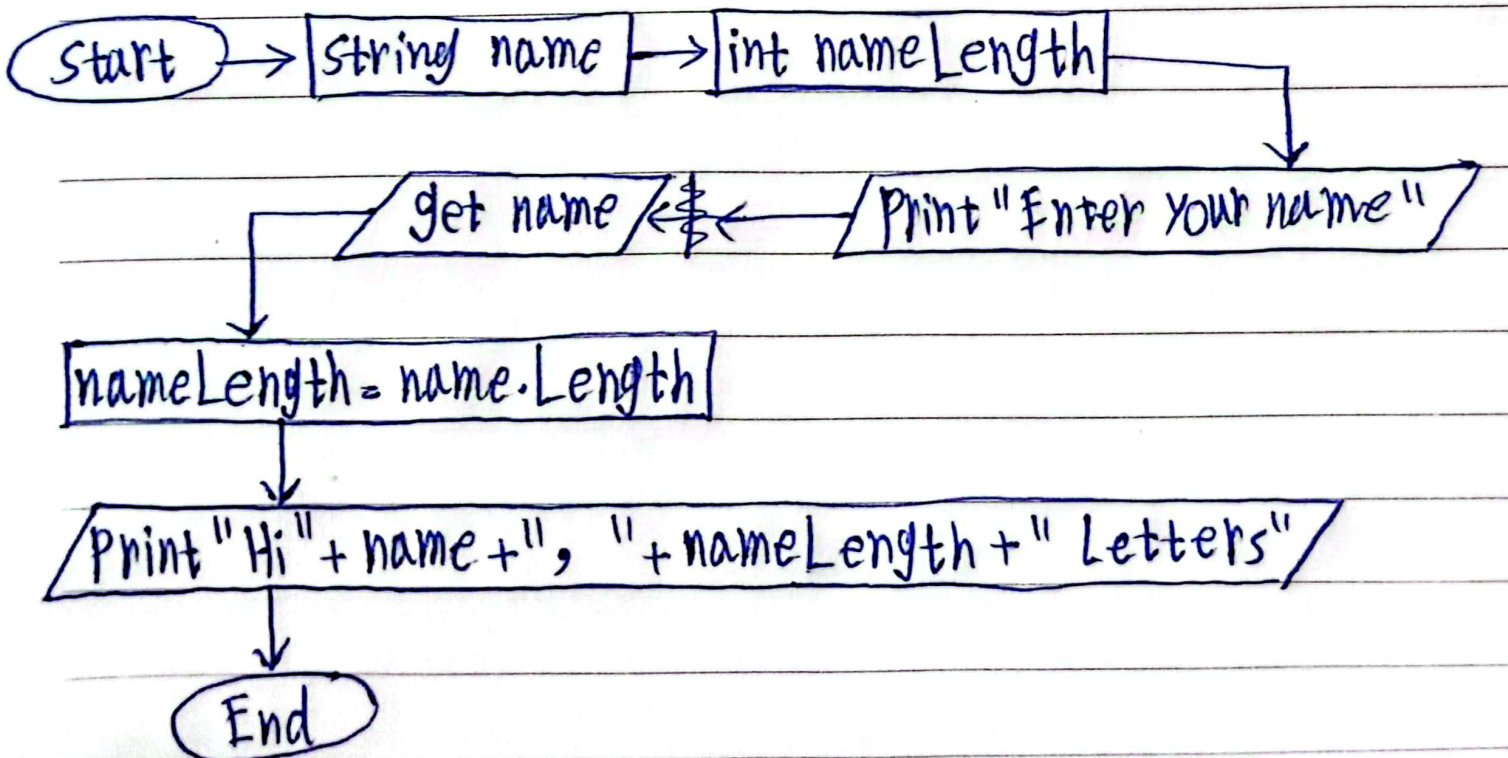 Start string name int nameLength
get name Print "Enter your name"
nameLength = name.Length
Print "Hi" + name + ", " + nameLength + " Letters"
End